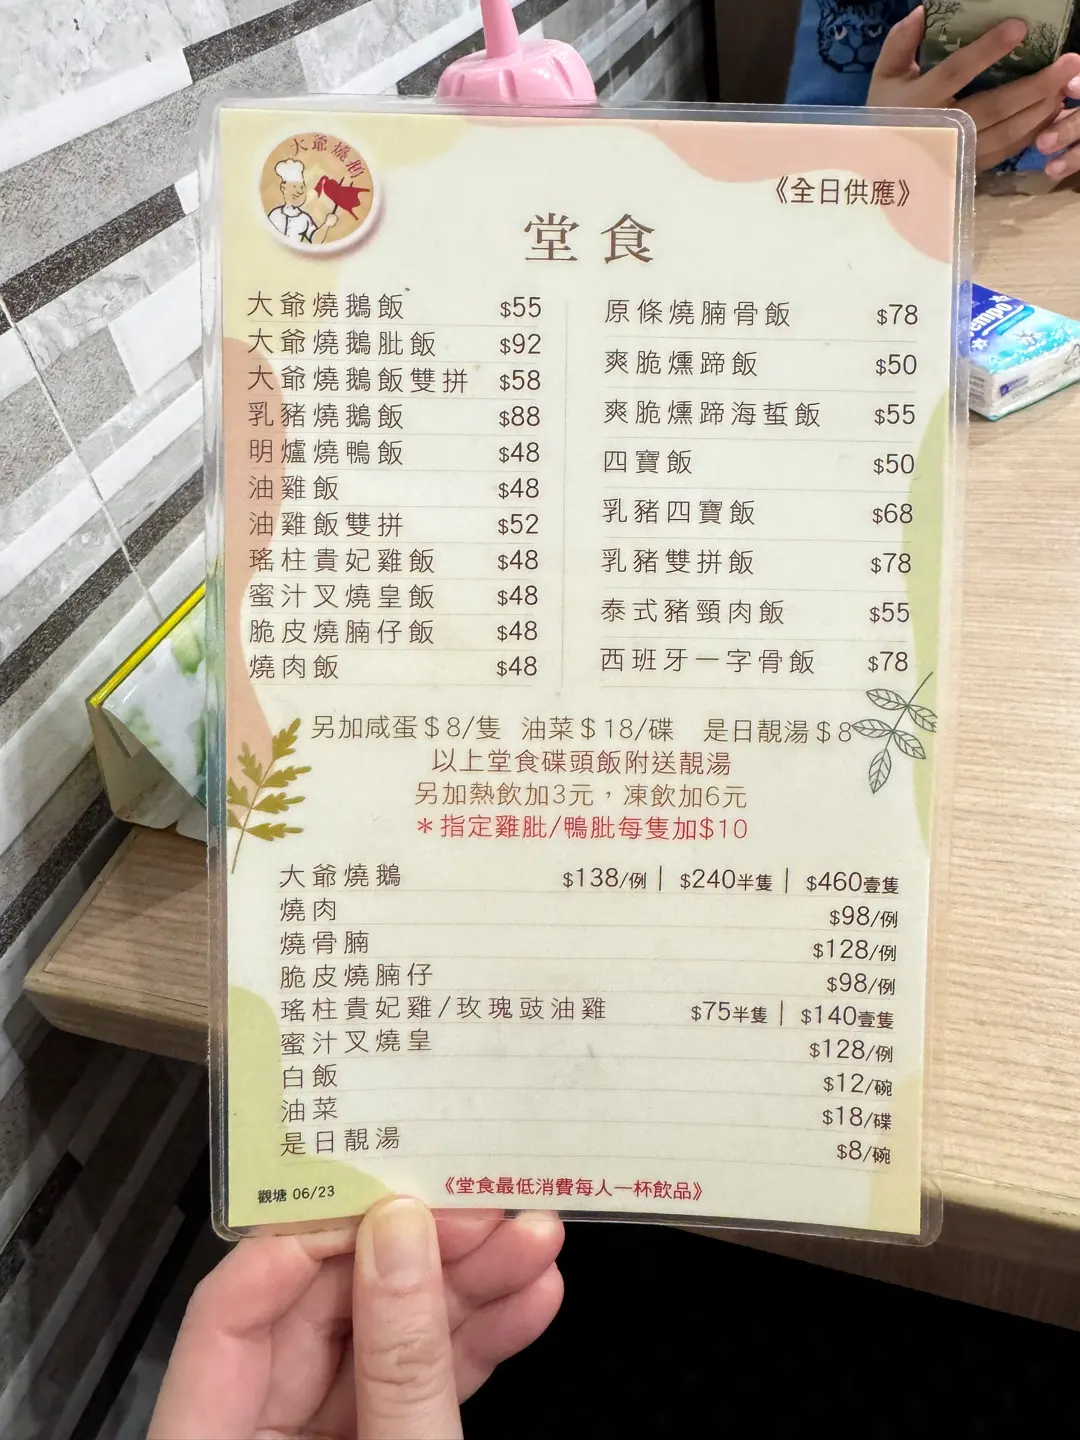 大爺燒鵝
《全日供應》
堂食
大爺燒鵝飯 $55
大爺燒鵝髀飯 $92
大爺燒鵝飯雙拼 $58
乳豬燒鵝飯 $88
明爐燒鴨飯 $48
油雞飯 $48
油雞飯雙拼 $52
瑤柱貴妃雞飯 $48
蜜汁叉燒皇飯 $48
脆皮燒腩仔飯 $48
燒肉飯 $48
原條燒腩骨飯 $78
爽脆燻蹄飯 $50
爽脆燻蹄海蜇飯 $55
四寶飯 $50
乳豬四寶飯 $68
乳豬雙拼飯 $78
泰式豬頸肉飯 $55
西班牙一字骨飯 $78
另加咸蛋$8/隻 油菜$18/碟 是日靚湯$8
以上堂食碟頭飯附送靚湯
另加熱飲加3元，凍飲加6元
＊指定雞肶/鴨肶每隻加$10
大爺燒鵝 $138/例 | $240半隻 | $460壹隻
燒肉 $98/例
燒骨腩 $128/例
脆皮燒腩仔 $98/例
瑤柱貴妃雞/玫瑰豉油雞 $75半隻 | $140壹隻
蜜汁叉燒皇 $128/例
白飯 $12/碗
油菜 $18/碟
是日靚湯 $8/碗
觀塘 06/23
《堂食最低消費每人一杯飲品》